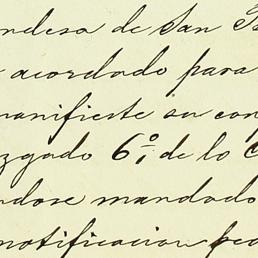 ndesa de San B
acordado para
manifieste su con
zgado 6º de lo C
ndose mandado
notificacion pe